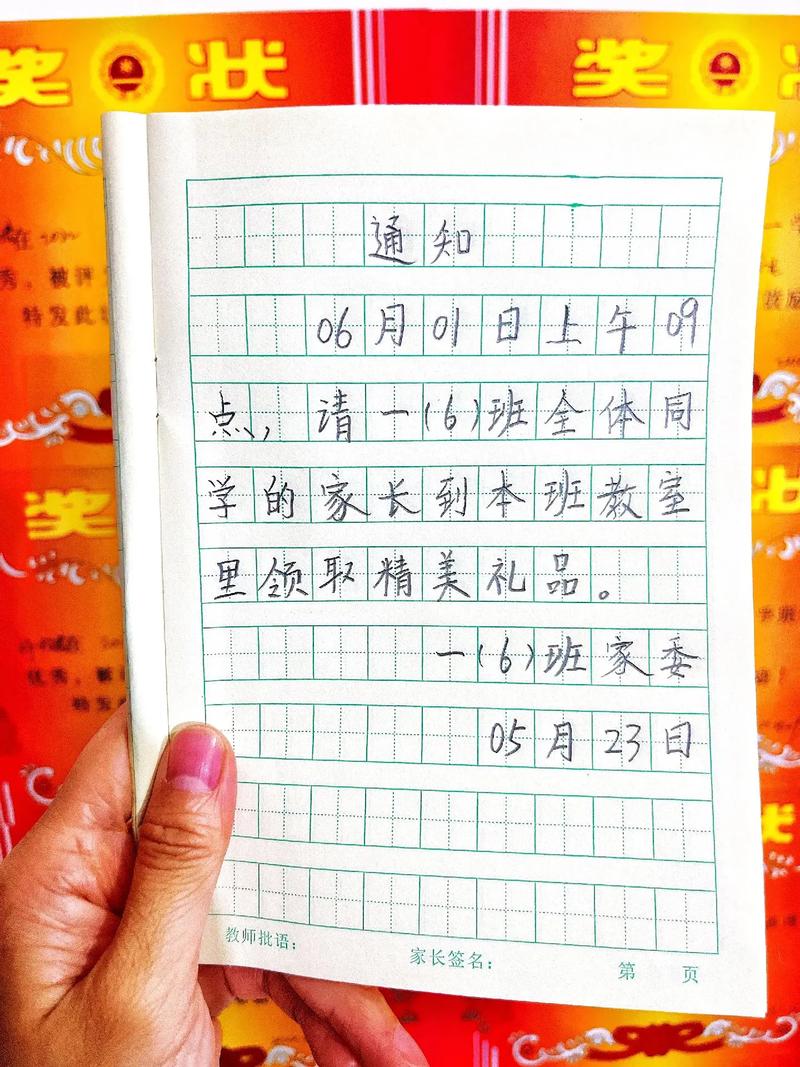 奖 状
奖 状
通知
06月01日上午09
点，请一(6)班全体同
学的家长到本班教室
里领取精美礼品。
一(6)班家委
05月23日
教师批语：
家长签名：
第 页
秀，被评
特发此
奖
状
优秀，
特发
状